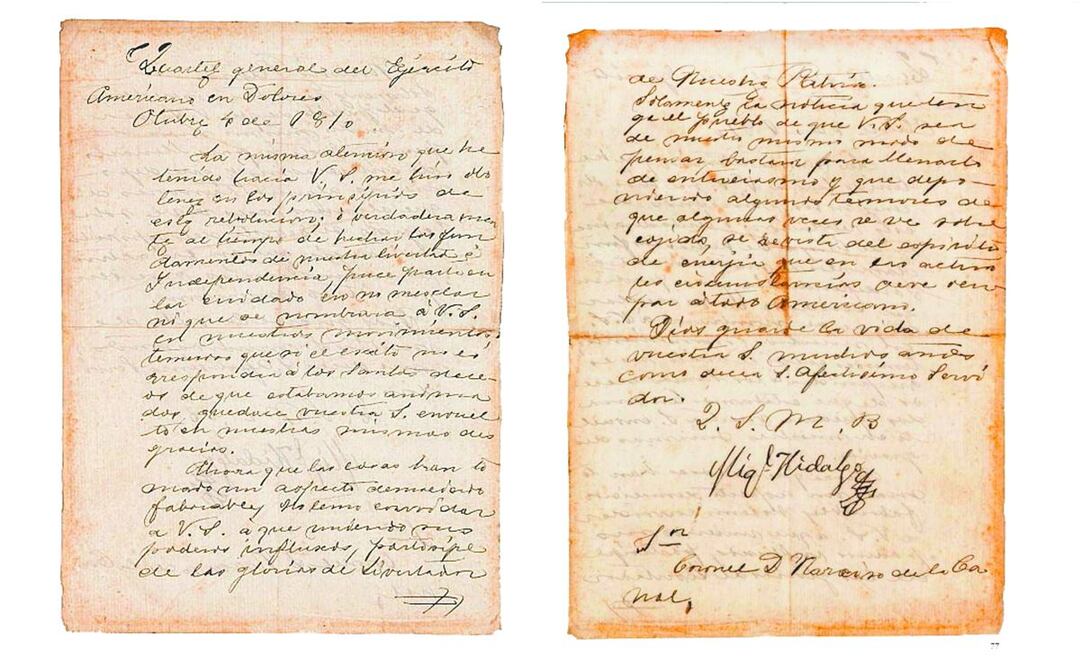 Quartel general del Ejército
Americano en Dolores
Otubre 4 de 1810
La misma atención que he
tenido hacia V. S. me hiso obs
tener en los prinsipios de
esta rebolucion, ó verdaderamen
te al tiempo de hechar los fun
damentos de nuestra livertad é
Independencia, puce particu
lar cuidado en no mesclar
ni que se nombrara á V. S.
en nuestros movimientos,
temeroso que si el exito no co
rrespondia á los santos dece
os de que estabamos anima
dos, quedace vuestra S. envuel
to en nuestras mismas des
gracias.
Ahora que las cosas han to
mado un aspecto demaciado
faborable, no temo convidar
a V. S. á que uniendo sus
poderosos influxos, participe
de las glorias de Livertador
de Nuestra Patria.
Solamente la noticia que ten
ga el pueblo de que V. S. sea
de nuestro mismo modo de
pensar bastará para llenarlo
de entuciasmo y que depo
niendo algunos temores de
que algunas veces se ve sobre
cojido, se revista del espiritu
de energia que en las actua
les circunstancias deve ocu
par á todo Americano.
Dios guarde la vida de
vuestra S. muchos años
como decea S. Afectisimo Servi
dor.
Q. S. M. B
Migl. Hidalgo
Sor
Coronel D Narciso de la Ca
nal,
77